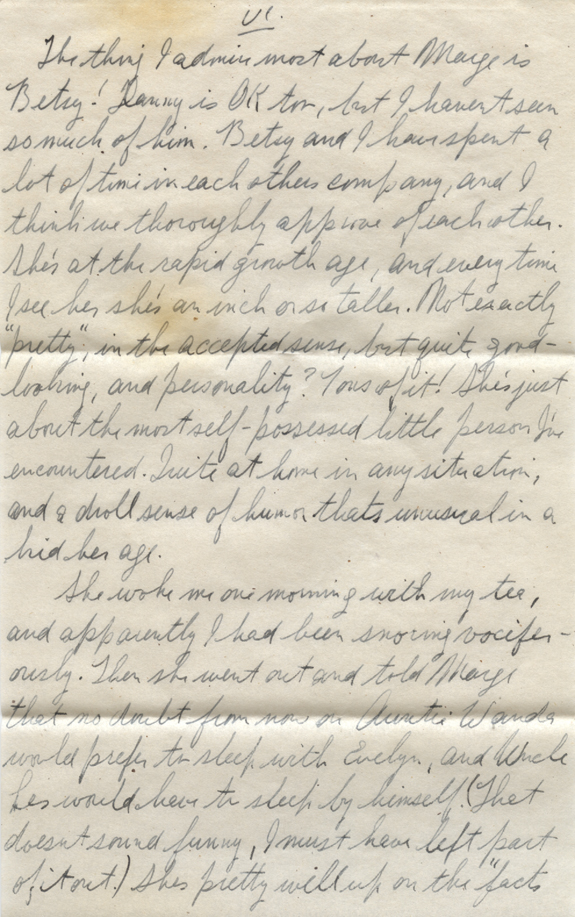 VI.
The thing I admire most about Marge is
Betsy! Danny is OK too, but I haven't seen
so much of him. Betsy and I have spent a
lot of time in each others company, and I
think we thoroughly approve of each other.
She's at the rapid growth age, and every time
I see her she's an inch or so taller. Not exactly
"pretty", in the accepted sense, but quite good-
looking, and personality? Tons of it! She's just
about the most self-possessed little person I've
encountered. Quite at home in any situation,
and a droll sense of humor thats unusual in a
kid her age.
She woke me one morning with my tea,
and apparently I had been snoring vocifer-
ously. Then she went out and told Marge
that no doubt from now on Auntie Wanda
would prefer to sleep with Evelyn, and Uncle
Les would have to sleep by himself. (That
doesn't sound funny, I must have left part
of it out.) She's pretty well up on the "facts